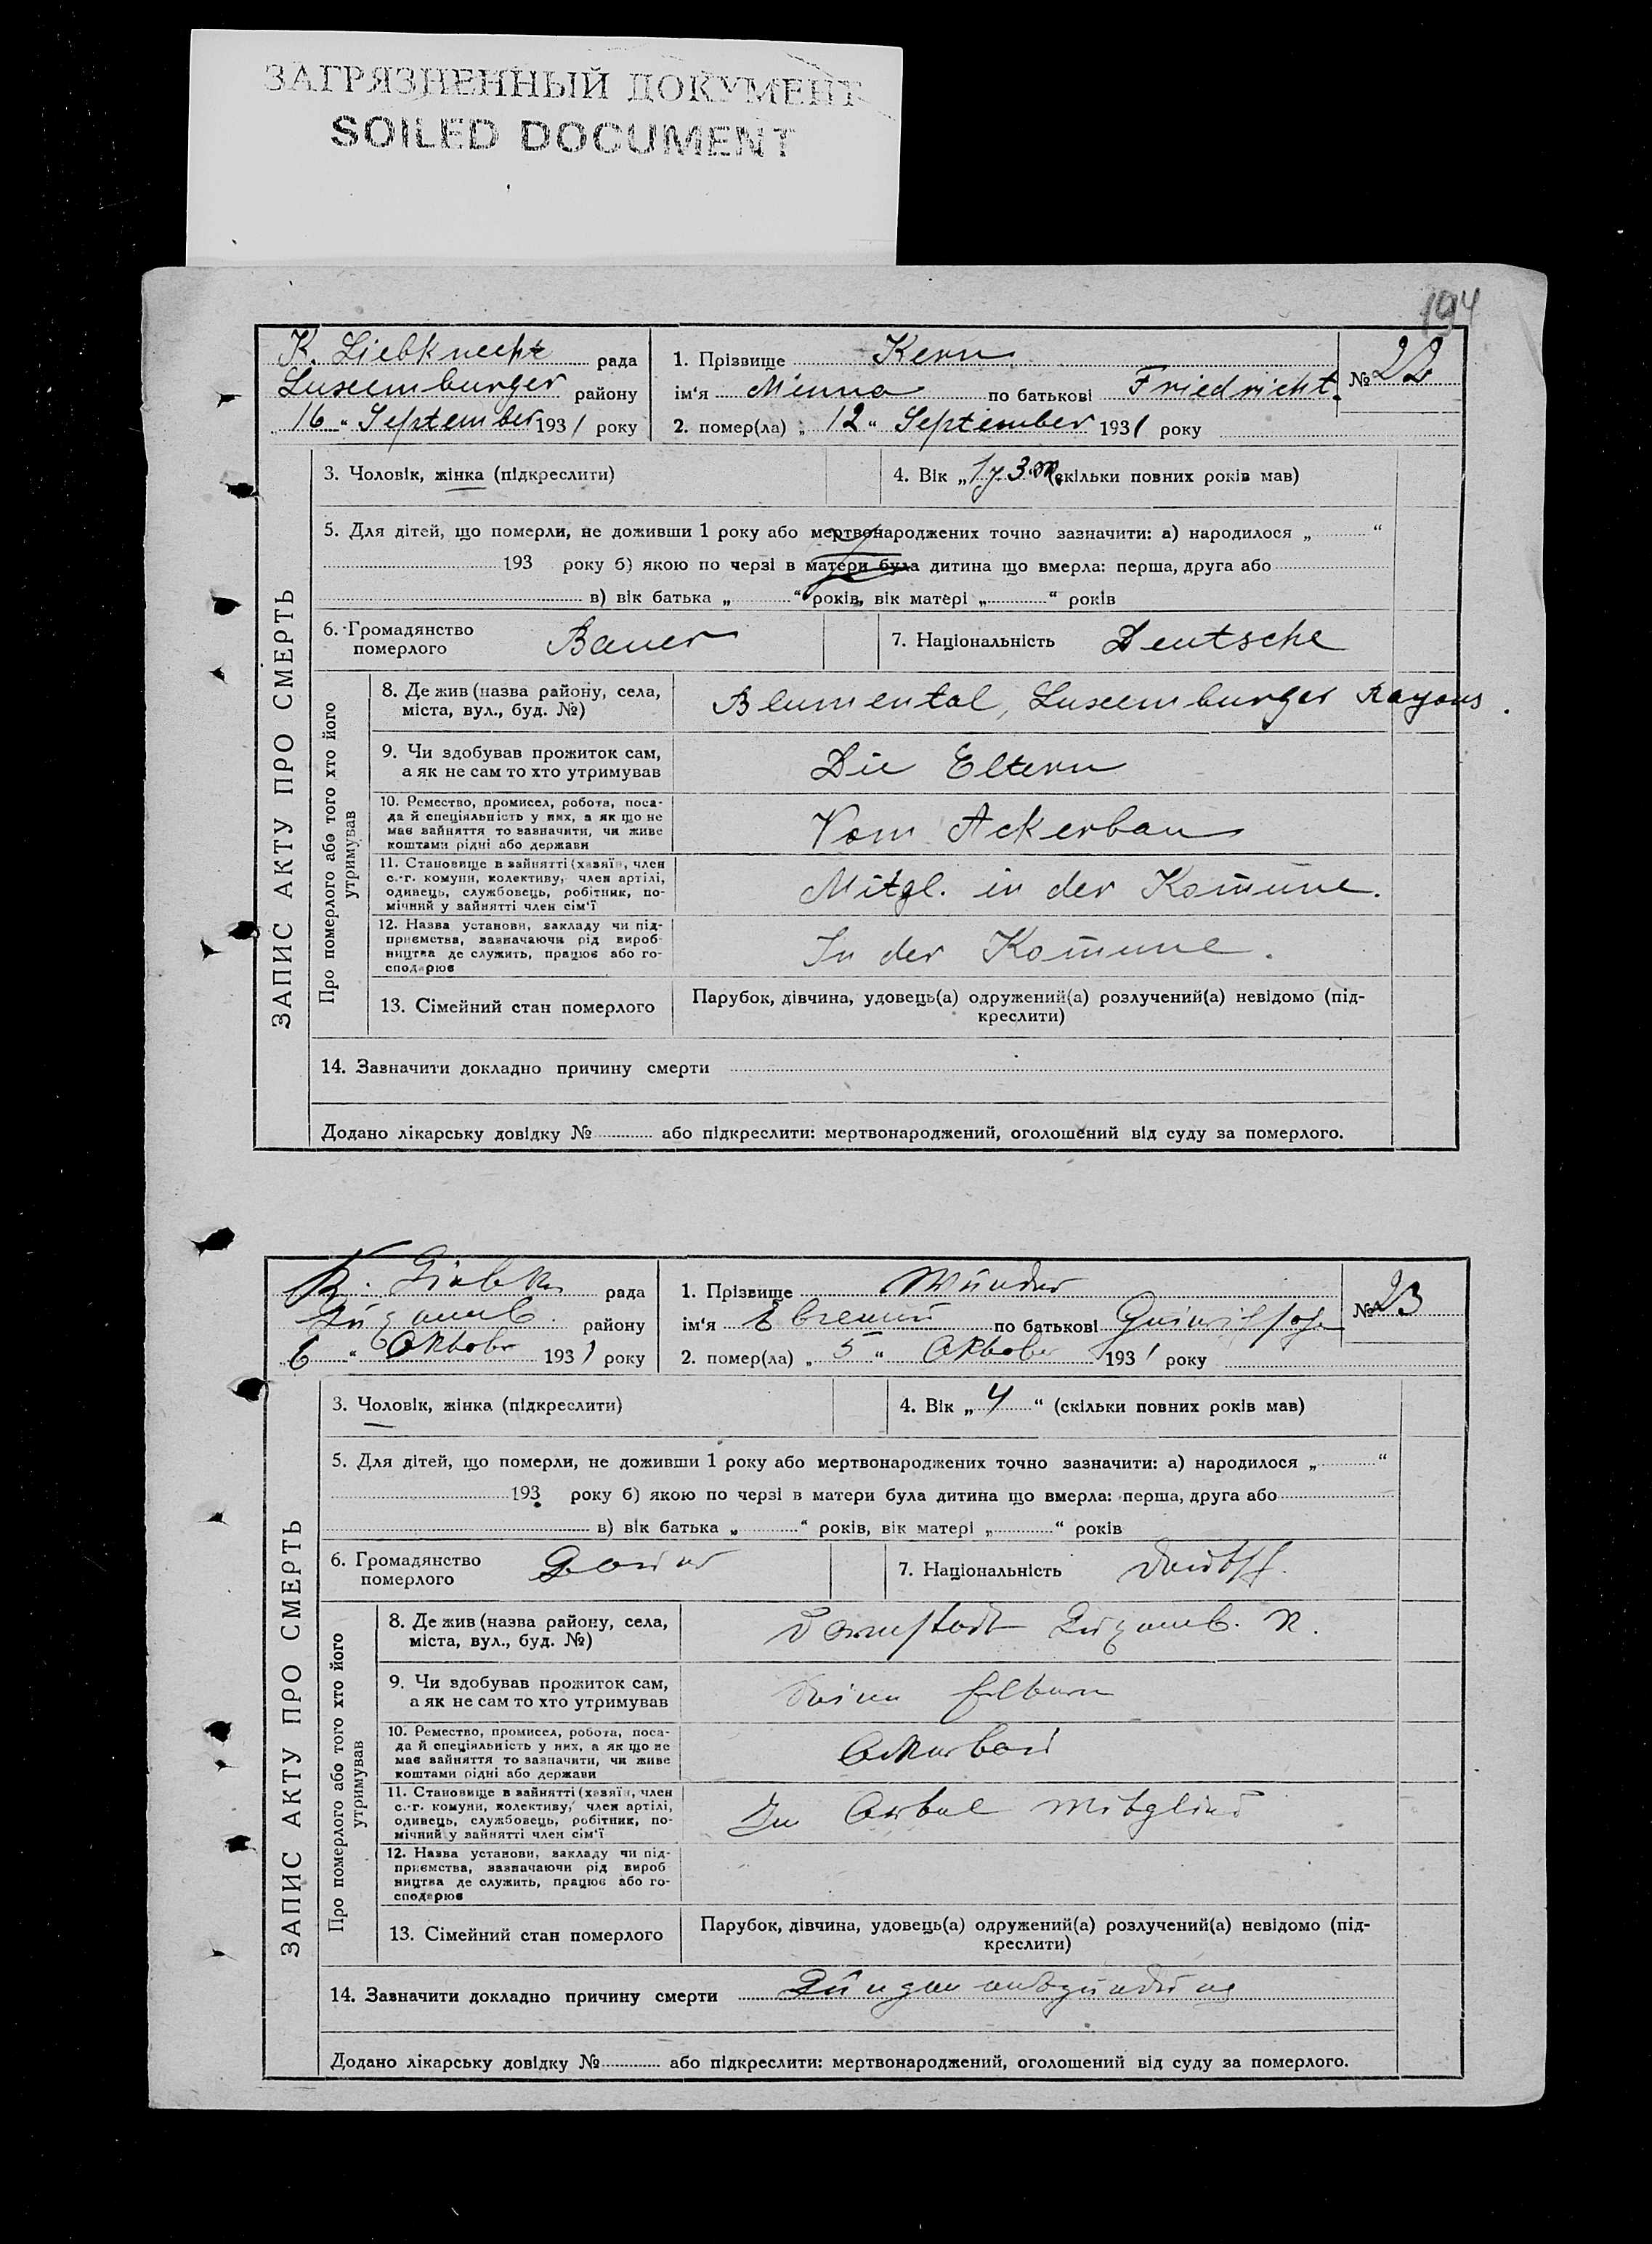 ЗАГРЯЗНЕННЫЙ ДОКУМЕНТ
SOILED DOCUMENT
194
K. Liebknecht рада
Luxemburger району
„16“ September 1931 року
1. Прізвище Kern
ім‘я Minna по батькові Friedricht.
№ 22
2. помер(ла) „12“ September 1931 року
ЗАПИС АКТУ ПРО СМЕРТЬ
3. Чоловік, жінка (підкреслити)
4. Вік „1j 3 m.“ (скільки повних років мав)
5. Для дітей, що померли, не доживши 1 року або мертвонароджених точно зазначити: а) народилося „ “
193 року б) якою по черзі в матери була дитина що вмерла: перша, друга або
в) вік батька „ “ років, вік матері „ “ років
6. Громадянство
померлого
Bauer
7. Національність Deutsche
Про померлого або того хто його
утримував
8. Де жив (назва району, села,
міста, вул., буд. №)
Blumental, Luxemburger Rayons.
9. Чи здобував прожиток сам,
а як не сам то хто утримував
Die Eltern
10. Ремество, промисел, робота, поса-
да й спеціяльність у них, а як що не
має зайняття то зазначити, чи живе
коштами рідні або держави
Vom Ackerbau
11. Становище в зайнятті (хазяїн, член
с.-г. комуни, колективу, член артілі,
одинець, службовець, робітник, по-
мічний у зайнятті член сім‘ї
Mitgl. in der Kom̄une.
12. Назва установи, закладу чи під-
приємства, зазначаючи рід вироб-
ництва де служить, працює або го-
сподарює
In der Kom̄une.
13. Сімейний стан померлого
Парубок, дівчина, удовець(а) одружений(а) розлучений(а) невідомо (під-
креслити)
14. Зазначити докладно причину смерти
Додано лікарську довідку № або підкреслити: мертвонароджений, оголошений від суду за померлого.
K. Liebkn рада
Luxemb. району
6 “ Oktober 1931 року
1. Прізвище Wunder
ім‘я по батькові
№ 23
2. помер(ла) „5“ Oktober 1931 року
ЗАПИС АКТУ ПРО СМЕРТЬ
3. Чоловік, жінка (підкреслити)
4. Вік „4“ (скільки повних років мав)
5. Для дітей, що померли, не доживши 1 року або мертвонароджених точно зазначити: а) народилося „ “
193 року б) якою по черзі в матери була дитина що вмерла: перша, друга або
в) вік батька „ “ років, вік матері „ “ років
6. Громадянство
померлого
Bauer
7. Національність Deutsch.
Про померлого або того хто його
утримував
8. Де жив (назва району, села,
міста, вул., буд. №)
Darmstadt Luxemb. R.
9. Чи здобував прожиток сам,
а як не сам то хто утримував
Seine Eltern
10. Ремество, промисел, робота, поса-
да й спеціяльність у них, а як що не
має зайняття то зазначити, чи живе
коштами рідні або держави
Ackerbau
11. Становище в зайнятті (хазяїн, член
с.-г. комуни, колективу, член артілі,
одинець, службовець, робітник, по-
мічний у зайнятті член сім‘ї
Im Artel Mitglied
12. Назва установи, закладу чи під-
приємства, зазначаючи рід вироб
ництва де служить, працює або го-
сподарює
13. Сімейний стан померлого
Парубок, дівчина, удовець(а) одружений(а) розлучений(а) невідомо (під-
креслити)
14. Зазначити докладно причину смерти Lungenentzündung
Додано лікарську довідку № або підкреслити: мертвонароджений, оголошений від суду за померлого.